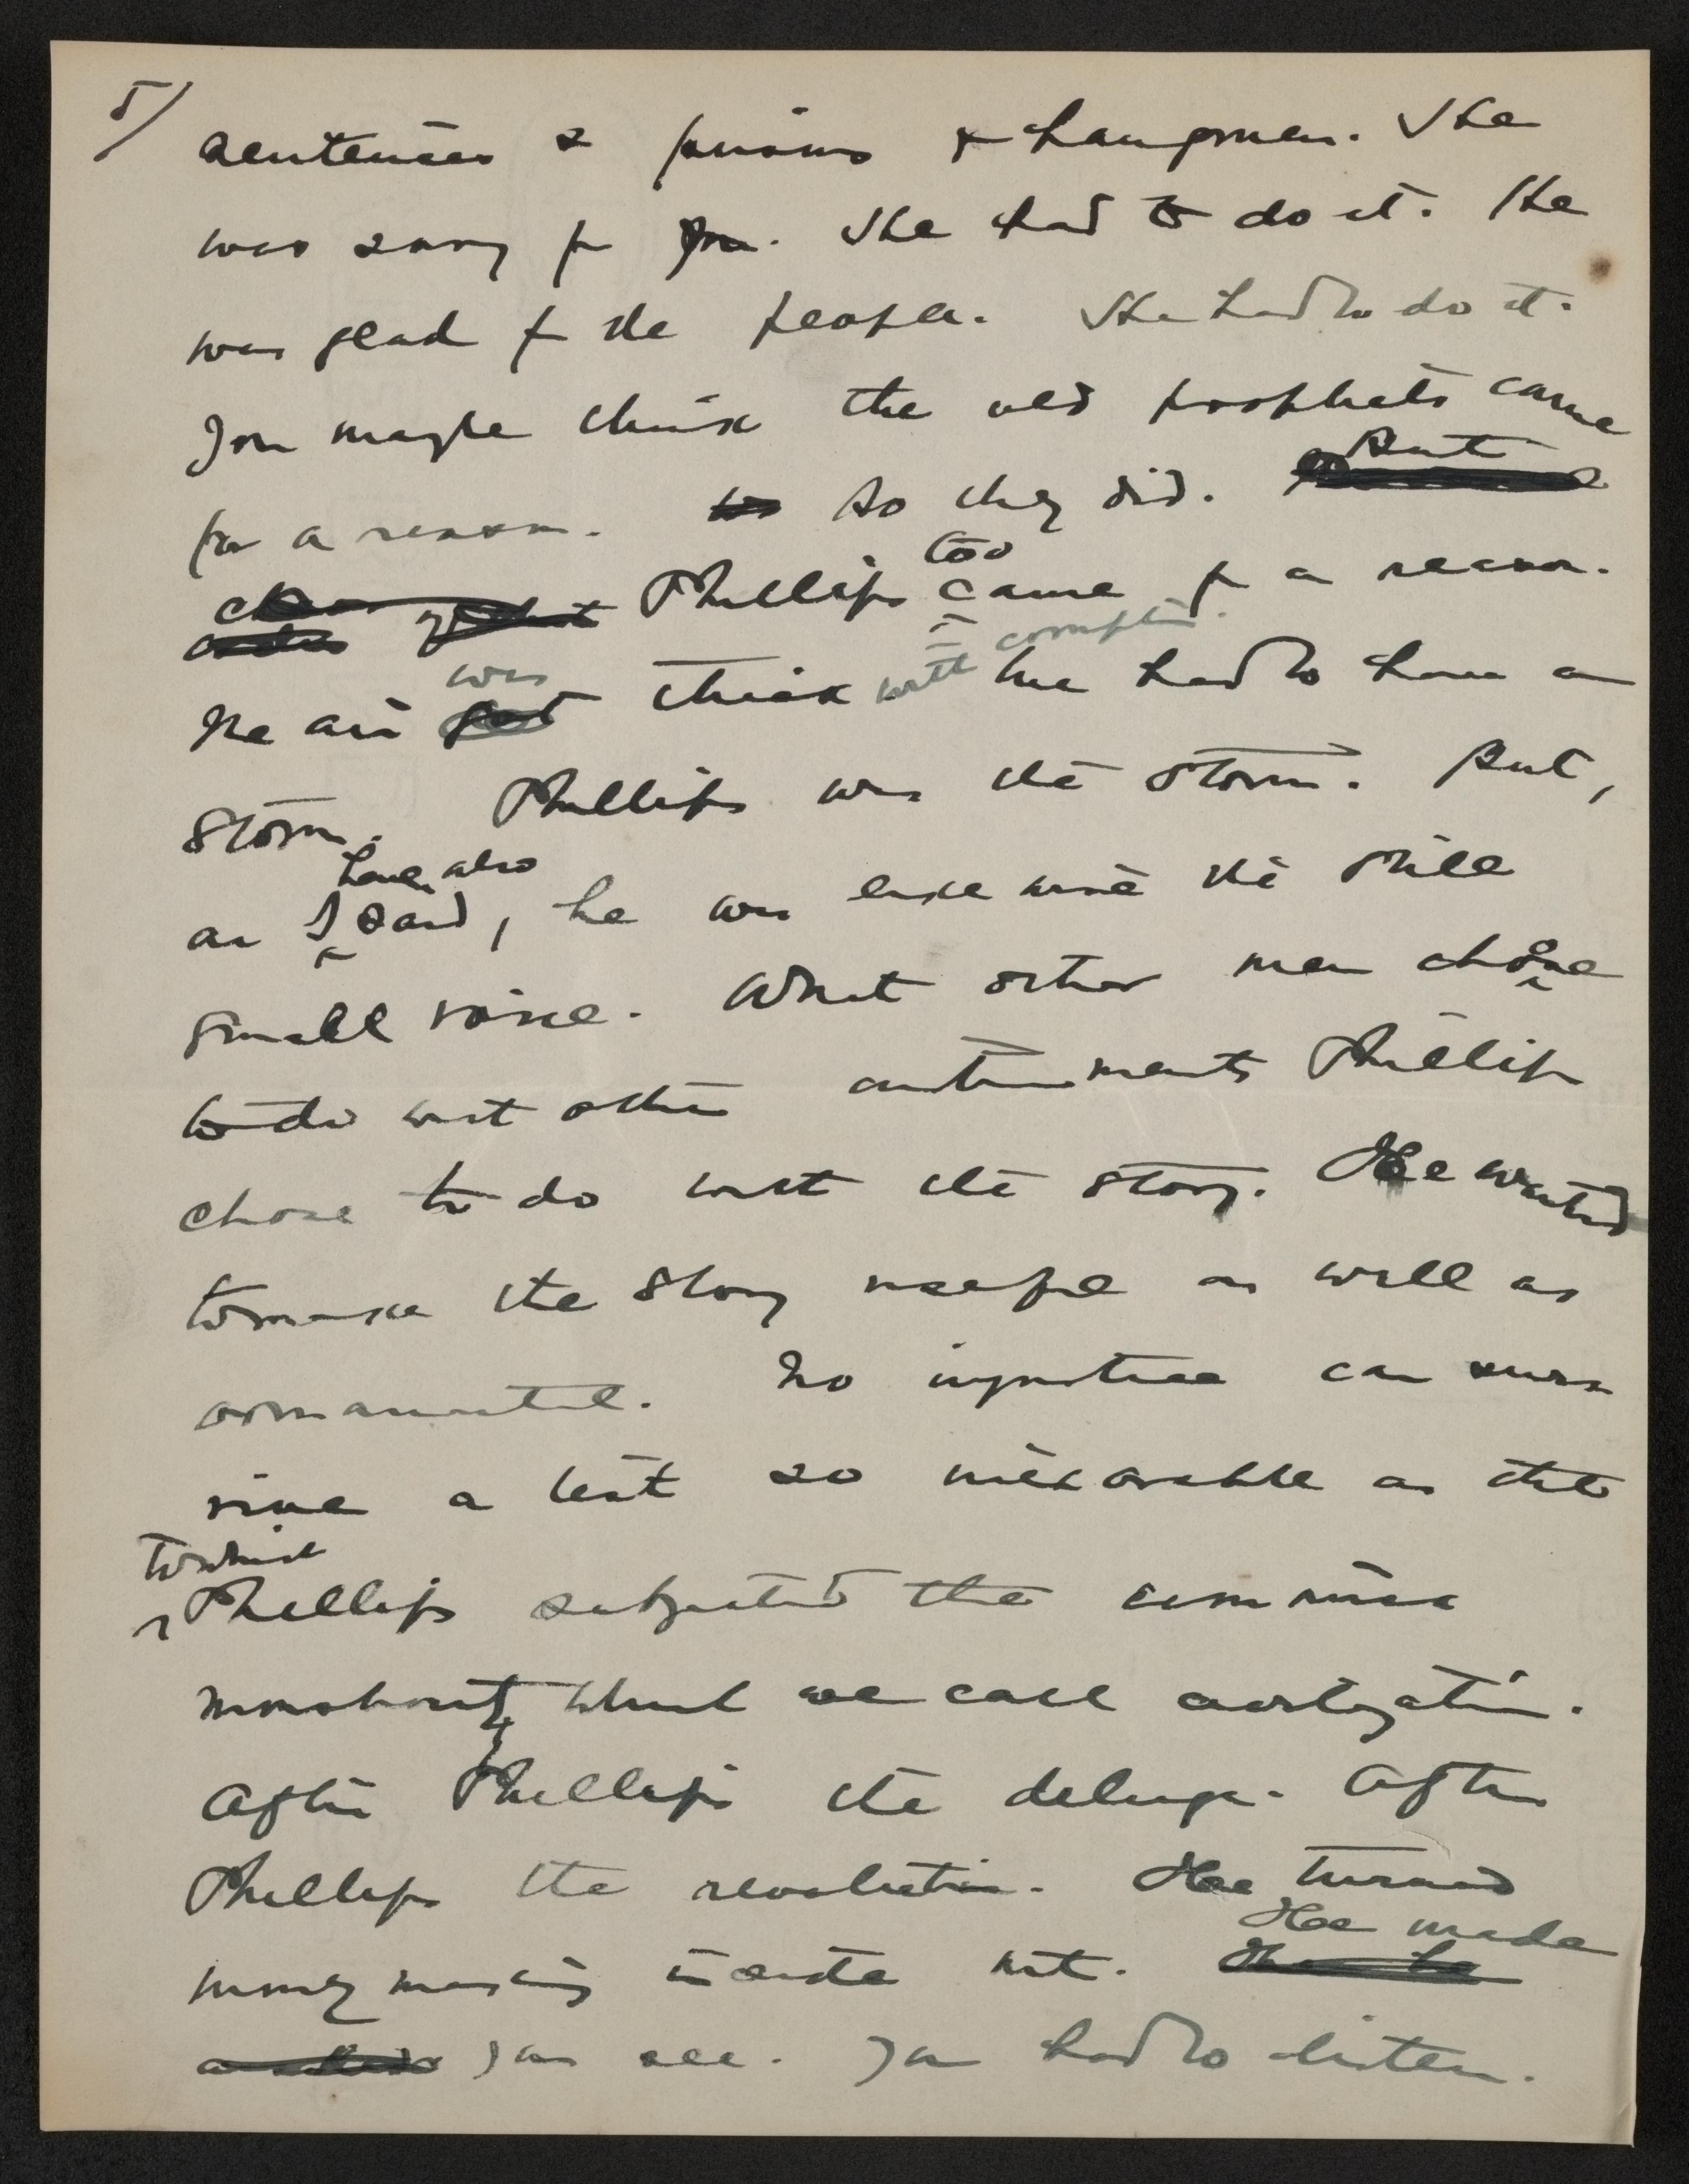 5/
sentences & prisons & hangmen. She
was sorry for you. She had to do it. She
was glad for the people. She had to do it.
You maybe think the old prophets came
for a reason. So they did. But
Phillips too came for a reason.
The air was thick with corruption. We had to have a
storm. Phillips was the storm. But,
as I have also said, he was likewise the still
small voice. What other men chose
to do with other instruments Phillips
chose to do with the story. He wanted
to make the story useful as well as
ornamental. No injustice can sur
vive a test so inexorable as that
to which Phillips subjected the
monstrosity which we call civilization.
After Phillips the deluge. After
Phillips the revolution. He turned
money making inside out. He made
you see. You had to listen.